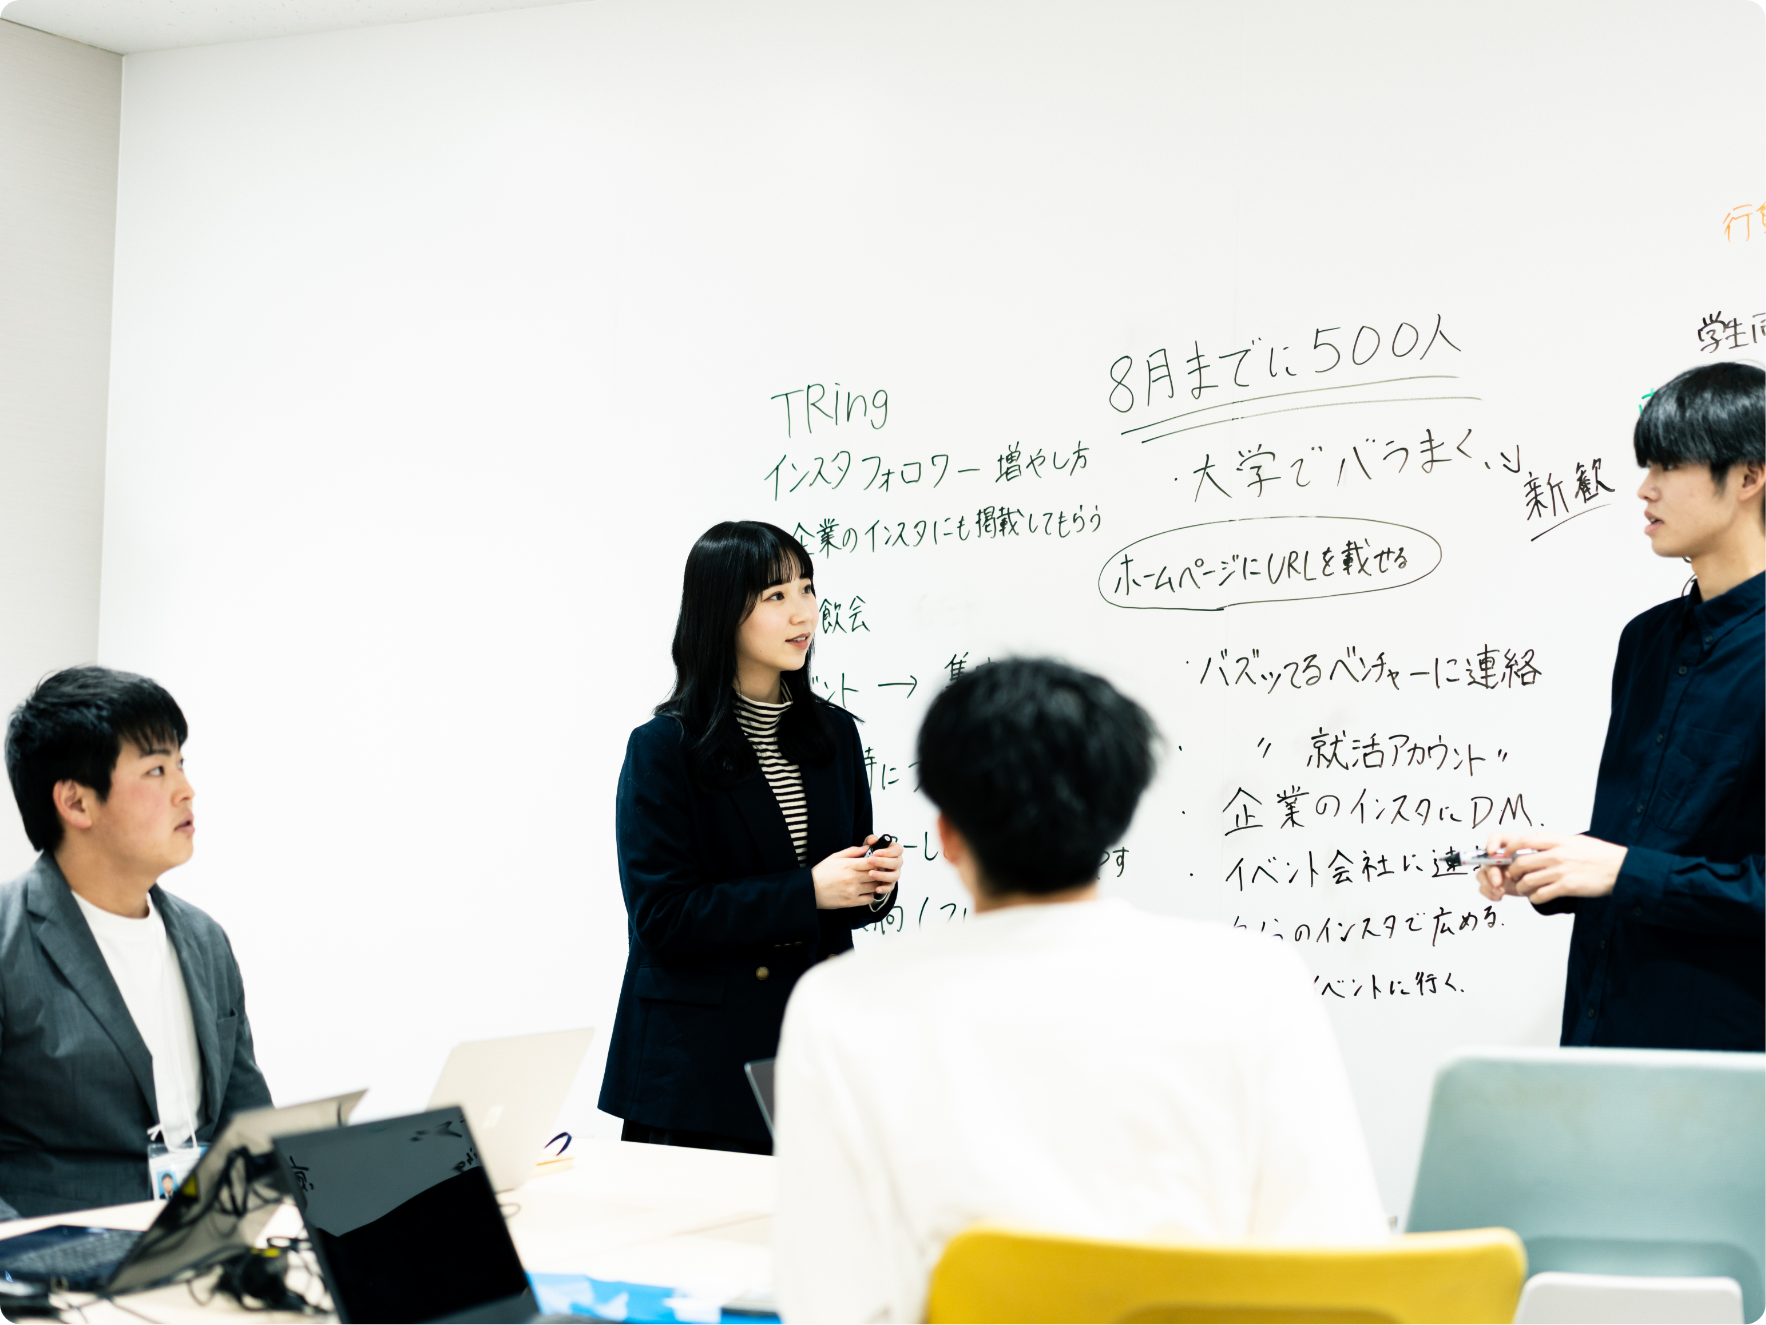 TRing
インスタフォロワー 増やし方
企業のインスタにも掲載してもらう
飲会
ント →
8月までに500人
・大学でバラまく、
新歓
ホームページにURLを載せる
・バズってるベンチャーに連絡
・ 〃 就活アカウント〃
・企業のインスタにDM.
・イベント会社に連
のインスタで広める.
イベントに行く.
行
学生